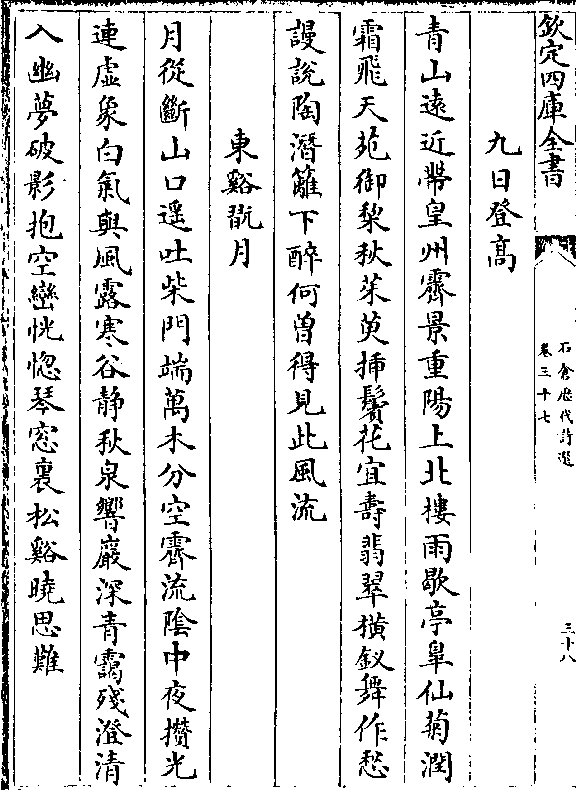 欽定四庫全書
石倉歷代詩選
卷三十七
三十八
九日登髙
青山遠近帶皇州霽景重陽上北樓雨歇亭臯仙菊潤
霜飛天苑御棃秋茱萸挿鬢花宜壽翡翠橫釵舞作愁
謾說陶潛籬下醉何曽得見此風流
東谿翫月
月從斷山口遥吐柴門端萬木分空霽流陰中夜攢光
連虚象白氣與風露寒谷静秋泉響巖深青靄殘澄清
入幽夢破影抱空巒恍惚琴窓裏松谿曉思難